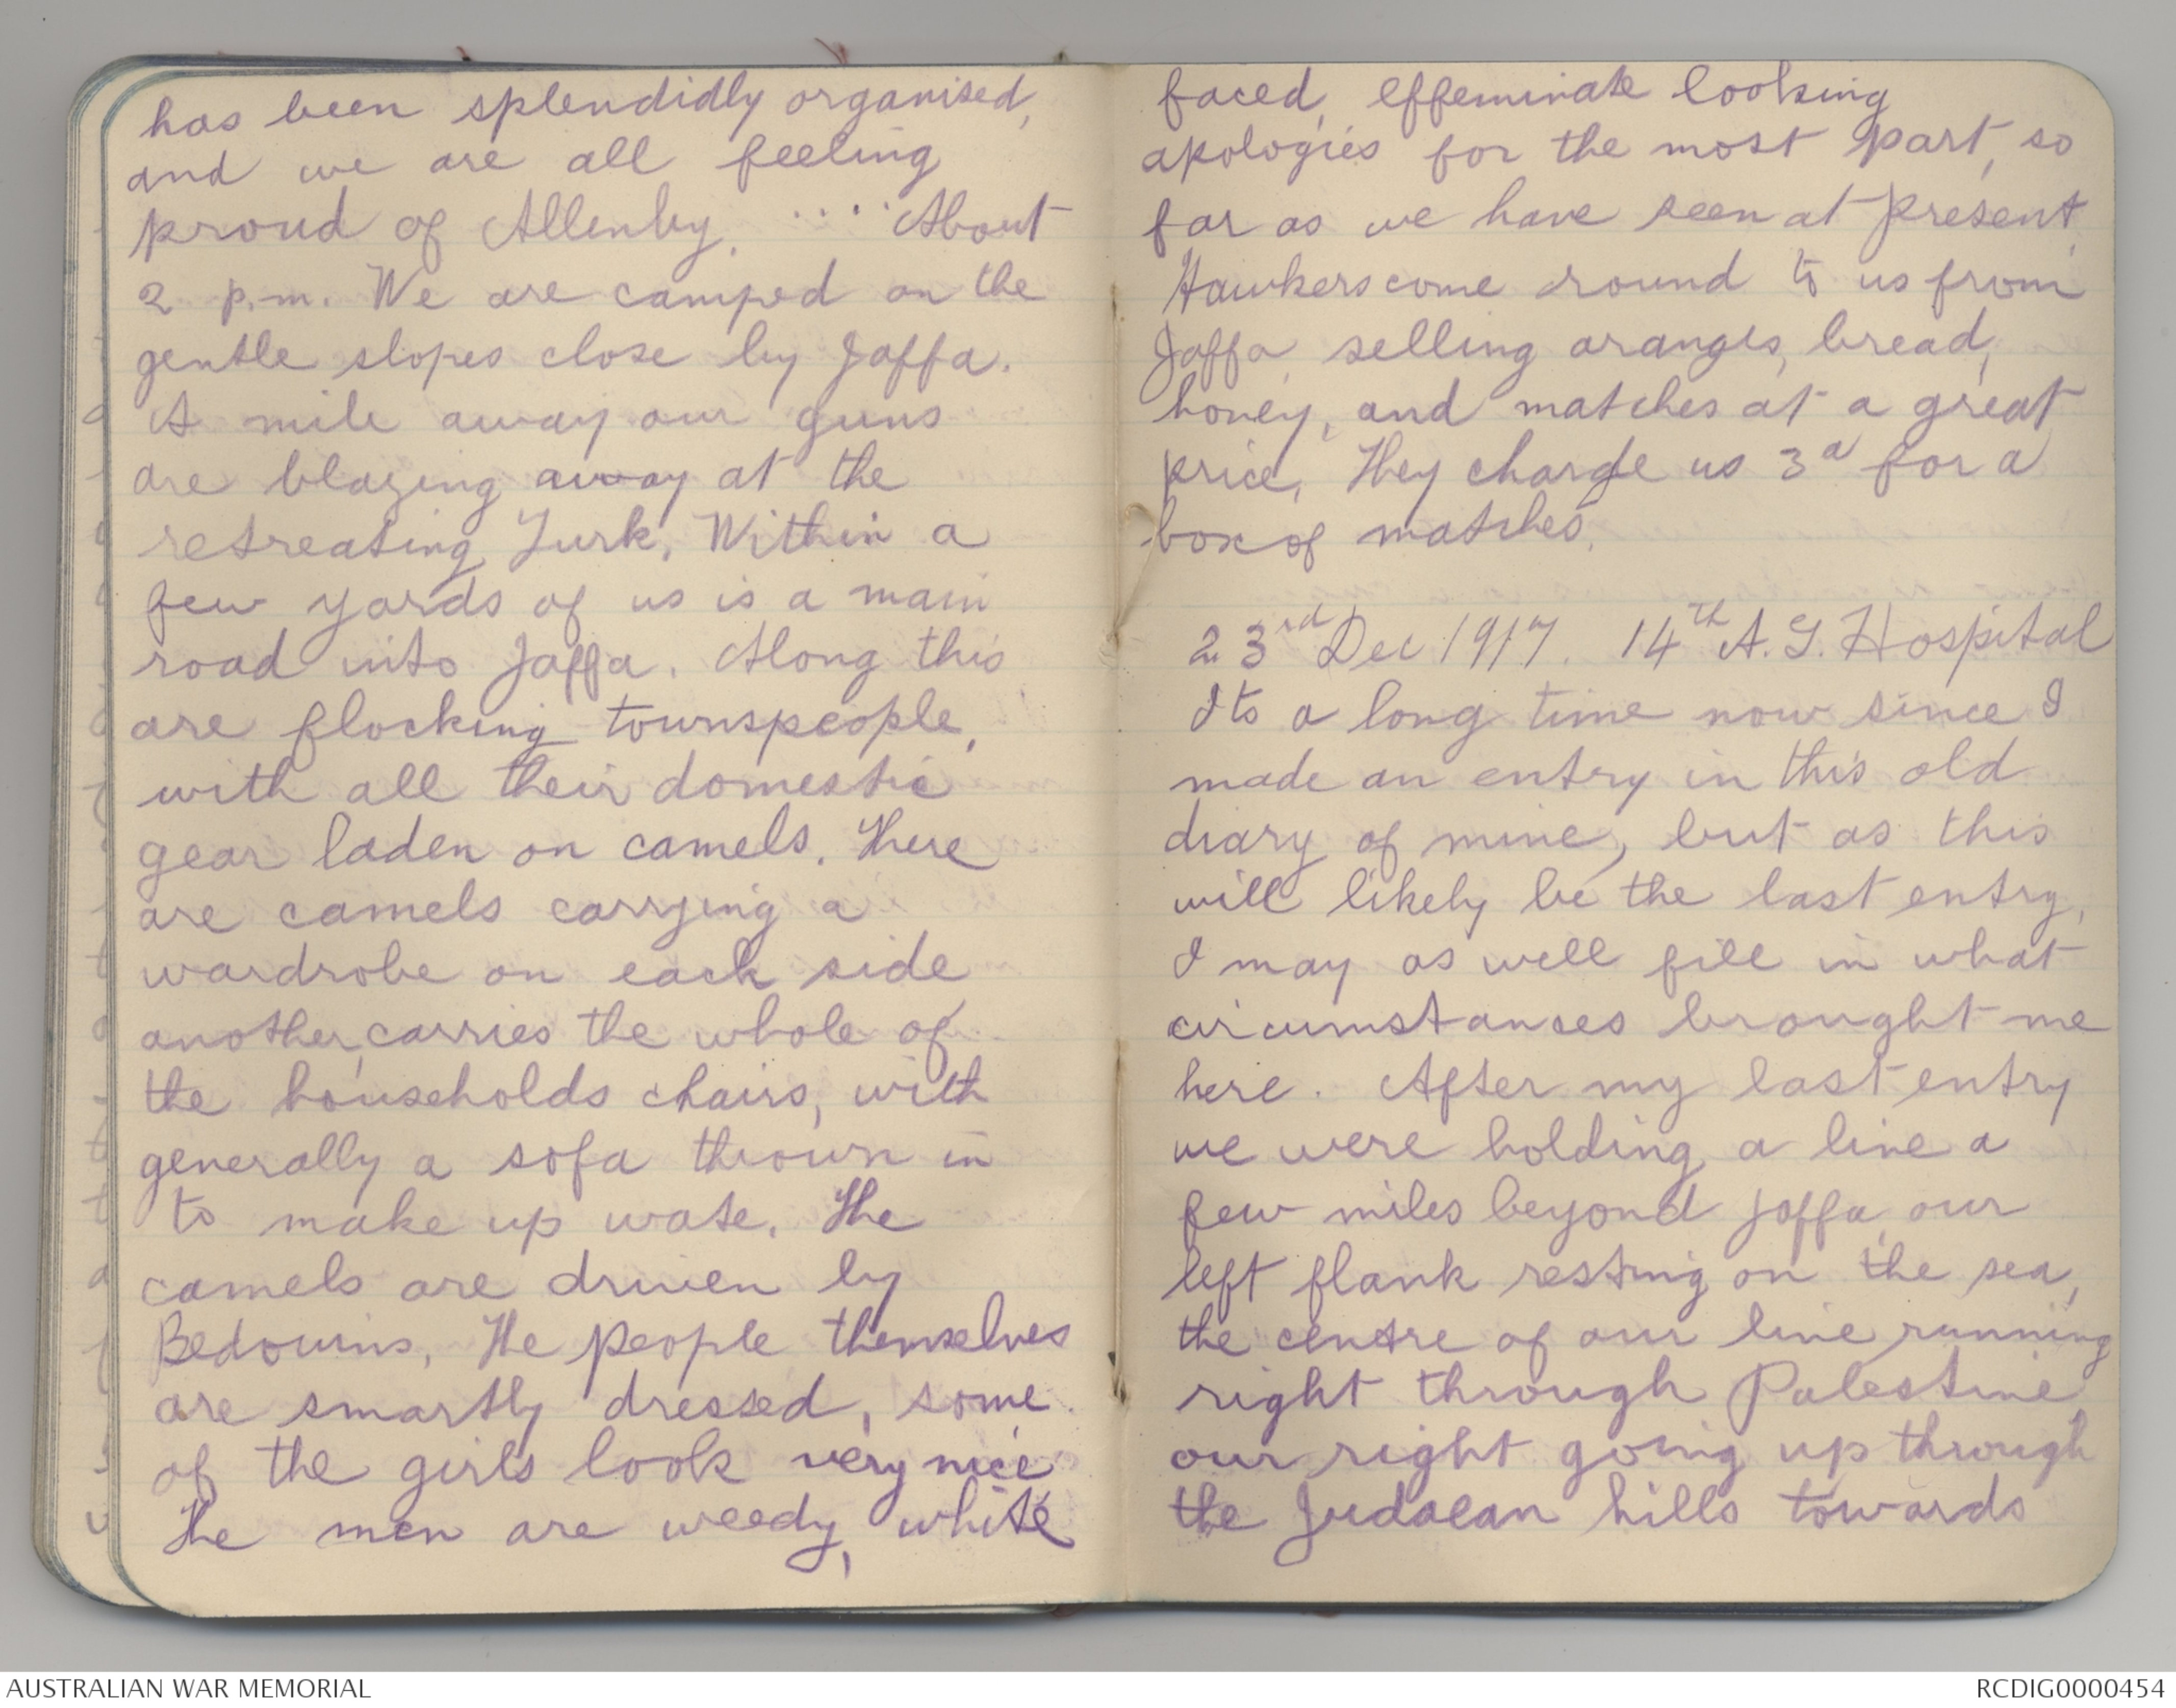 has been splendidly organised,
and we are all feeling
proud of Allenby. .... About
2 p.m. We are camped on the
gentle slopes close by Jaffa.
A mile away our guns
are blazing away at the
retreating Turk. Within a
few yards of us is a main
road into Jaffa. Along this
are flocking townspeople,
with all their domestic
gear laden on camels. There
are camels carrying a
wardrobe on each side
another, carries the whole of
the households chairs, with
generally a sofa thrown in
to make up wate. The
camels are driven by
Bedouins. The people themselves
are smartly dressed, some
of the girls look very nice
The men are weedy, white
faced, effeminate looking
apologies for the most part, so
far as we have seen at present.
Hawkers come round to us from
Jaffa selling oranges, bread,
honey, and matches at a great
price. They charge us 3d for a
box of matches.
23rd Dec 1917. 14th A.G. Hospital
Its a long time now since I
made an entry in this old
diary of mine, but as this
will likely be the last entry,
I may as well fill in what
circumstances brought me
here. After my last entry
we were holding a line a
few miles beyond Jaffa, our
left flank resting on the sea,
the centre of our line running
right through Palestine
our right going up through
the Judaean hills towards
AUSTRALIAN WAR MEMORIAL
RCDIG0000454